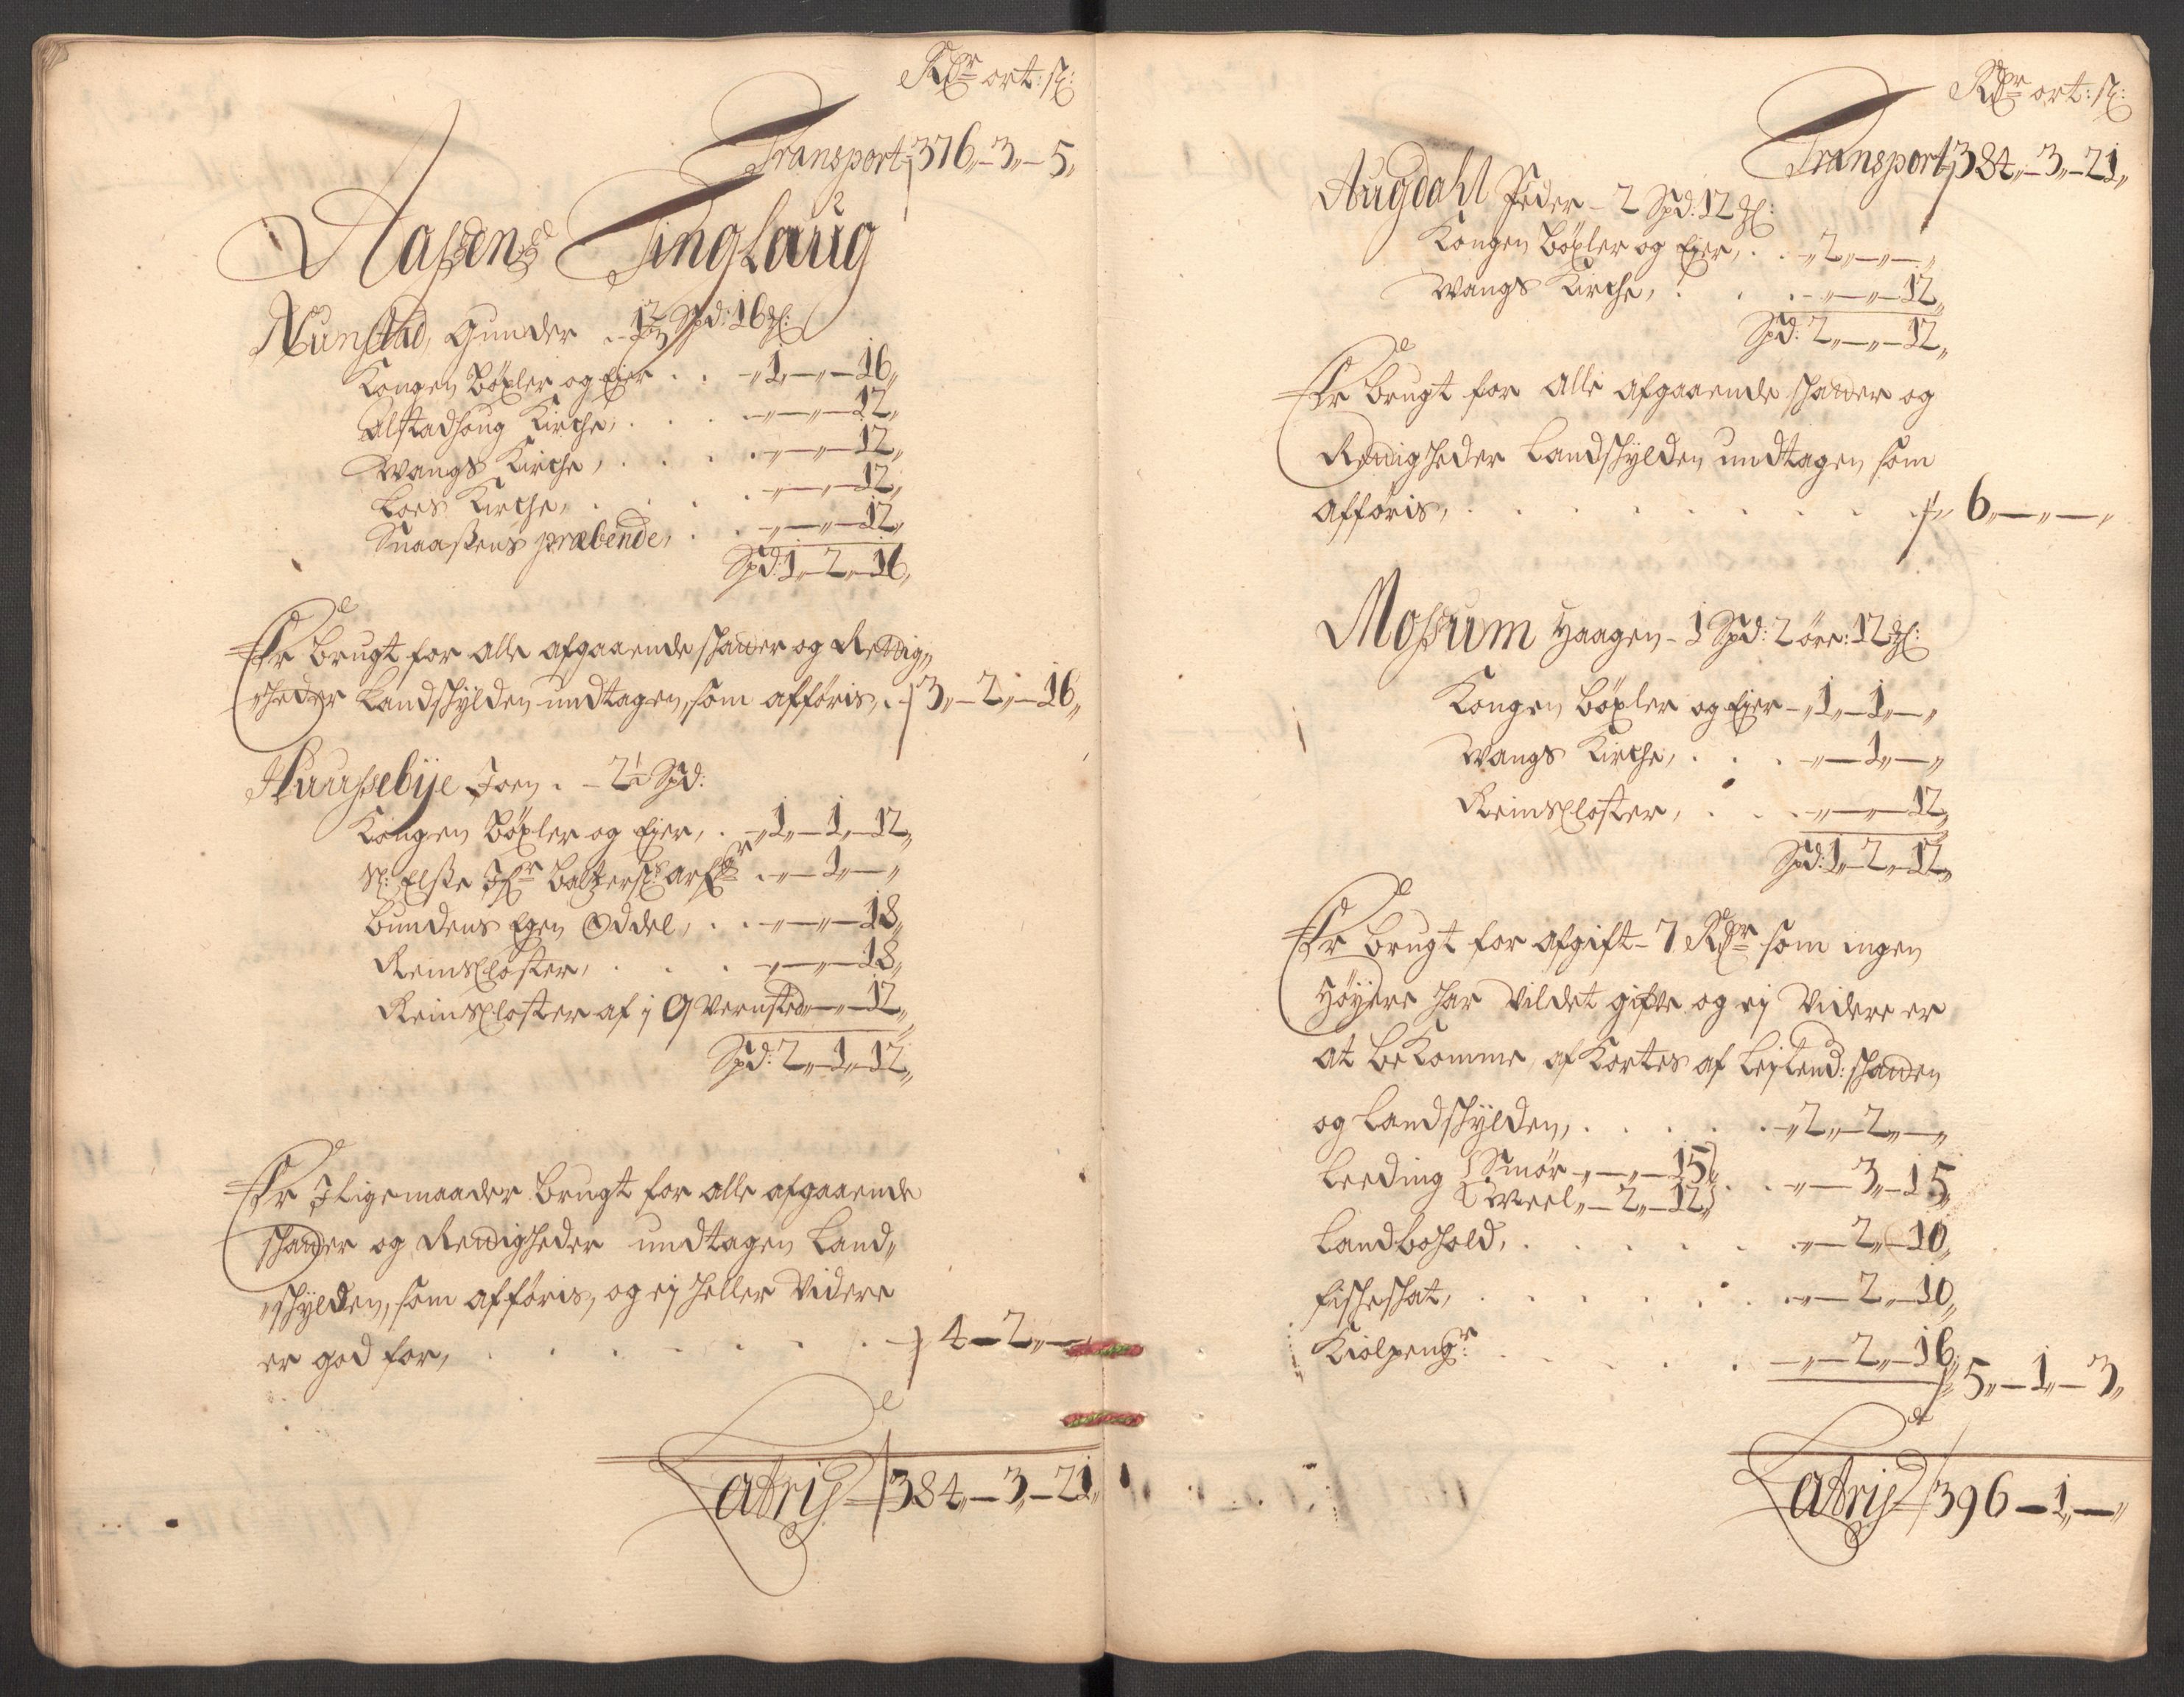 Rdr ort: sk:
Transport 376„ 3„ 5„
Aasens Tinglaug
Nunstad, Gunder .. 1½ Spd: 16 mk:
Kongen böxler og Ejer . . „1„ — „ 16„
Alstadhoug Kirche, . . . „ — „ 12„
Wangs Kirche, . . . „ — „ 12„
Loes Kirche, . . . „ — „ 12„
Snaasens præbende, . . „ — „ 12„
Spd: 1„ 2„ 16„
Er brugt for alle afgaaende schatter og Rettig„
„heder Landschylden undtagen, som afföris . 3„ 2„ 16„
Huussebije Joen . 2½ Spd:
Kongen böxler og Ejer, . „1„ 1„ 12„
Sl: Elsse Jfr Baltzers arf . „ 1„ — „
Bundens Egen Oddel, . . „ — „ 18„
Reins Closter, . . . „ — „ 18„
Reins Closter af j Qvernsted „ — 12„
Spd: 2„ 1„ 12„
Er Iligemaader brugt for alle afgaaende
schatter og Rettigheder undtagen Land„
„schylden, som afföris, og ej heller Videre
er god for, . . . . . . 4 — 2„ —
Latris 384„ 3„ 21„
Rdr ort: sk:
Transport 384„ 3„ 21„
Augdahl Peder - 2 Spd: 12 mk:
Kongen böxler og Ejer, . . „2„ — „ — „
Wangs Kirche, . . . „ — „ 12„
Spd: 2„ — „ 12„
Er brugt for alle afgaaende schatter og
Rettigheder Landschylden undtagen som
afföris, . . . . . . . . 6„ — „ — „
Mossum Haagen - 1 Spd: 2 öre: 12 mk:
Kongen böxler og Ejer „1„ 1„ — „
Wangs Kirche, . . . „ 1„ — „
Reins Closter, . . . „ — „ 12„
Spd: 1„ 2„ 12„
Er brugt for afgift - 7 Rdr som ingen
Höyere har Vildet gifve og ej Videre er
at bekomme, af Kortes af Leylend: schatten
og Landschylden, . . . . „2„ 2„ — „
Leeding { Smör „ — „ 15 } . . „ 3„ 15„
{ Meel „ 2„ 12„ }
Landbohold, . . . . . . „ 2„ 10„
fischeschat, . . . . . . „ 2„ 10„
Kiolpengr: . . . . . „ 2„ 16„
5„ 1„ 3„
Latris 396 — 1„ — „